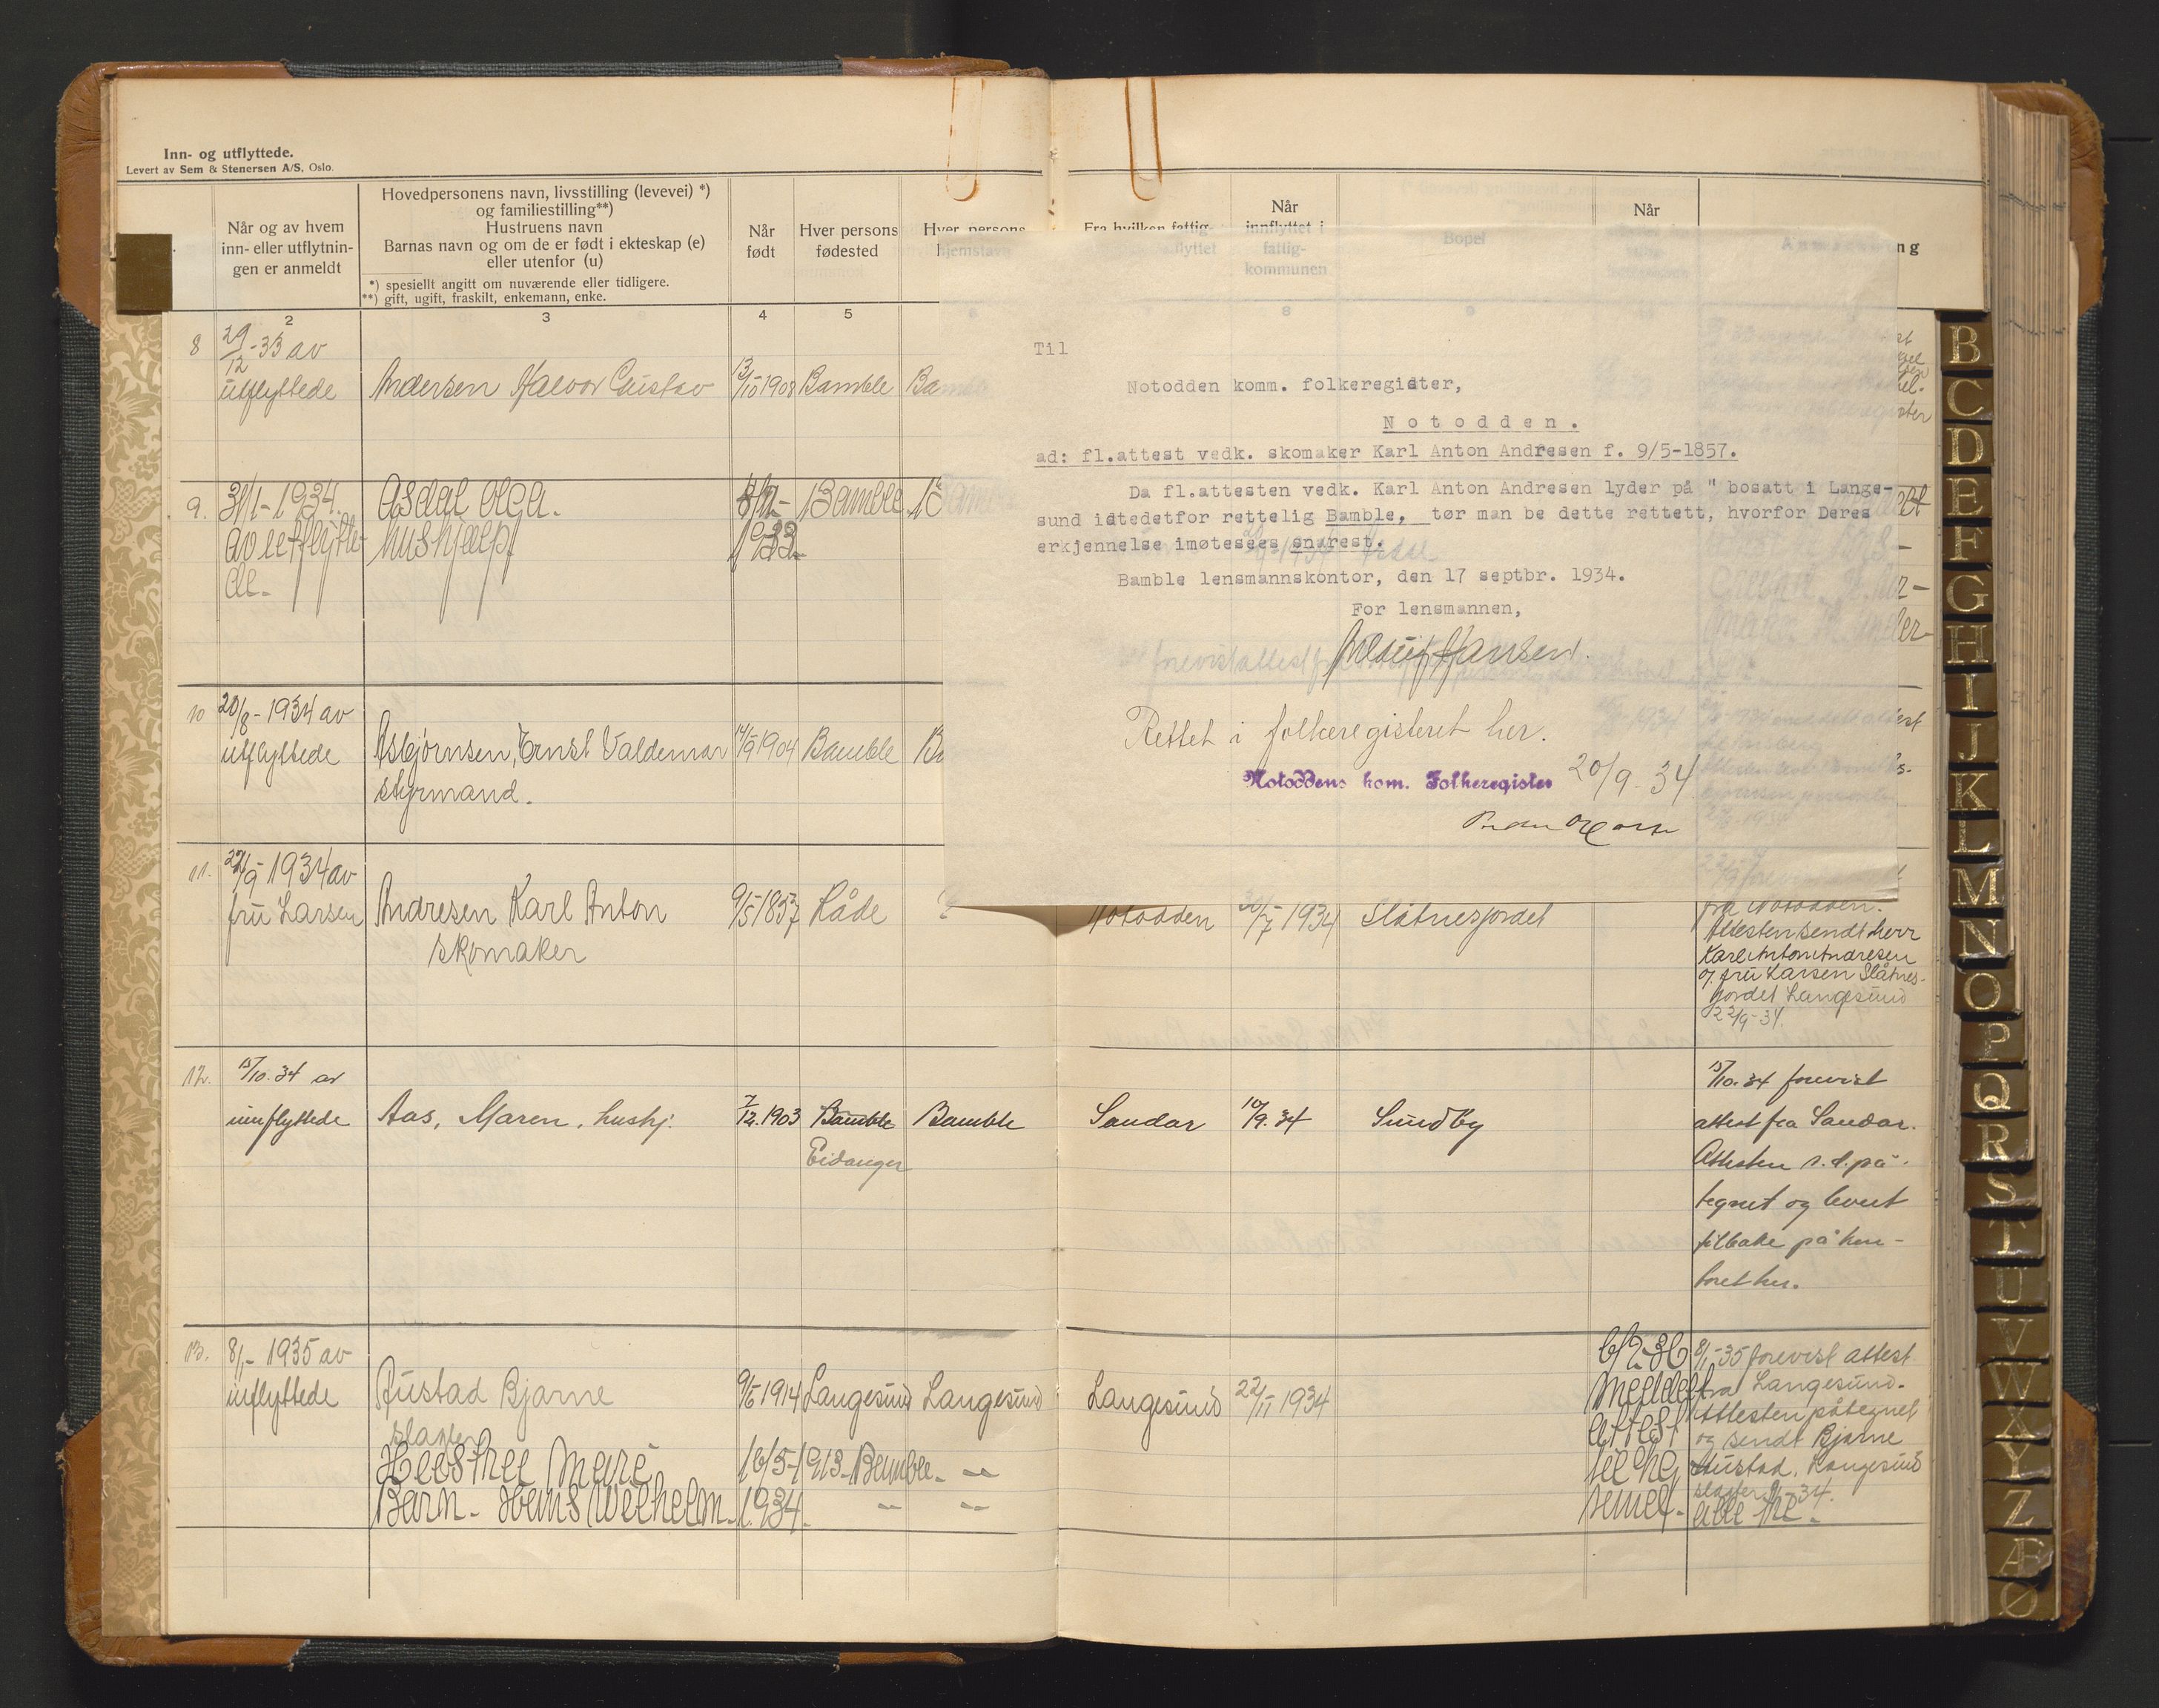 Inn- og utflyttede.
Levert av Sem & Stenersen A/S, Oslo.
Når og av hvem
inn- eller utflytnin-
gen er anmeldt
Hovedpersonens navn, livsstilling (levevei) *)
og familiestilling**)
Hustruens navn
Barnas navn og om de er født i ekteskap (e)
eller utenfor (u)
*) spesiellt angitt om nuværende eller tidligere.
**) gift, ugift, fraskilt, enkemann, enke.
Når
født
Hver persons
fødested
Hver persons
hjemstavn
Fra hvilken fattig-
flyttet
Når
innflyttet i
fattig-
kommunen
Bopel
Når
2 3 4 5
8 29/12-33 av
utflyttede Andersen Halvor Gustav 13/10 1908 Bamble
9. 31/1-1934. Asdal Olga. Bamble
av utflytte- hushjælp
de-
10 20/8-1934 av
utflyttede Asbjørnsen, Ernst Valdemar 14/9 1904 Bamble
styrmand.
Til
Notodden komm. folkeregidter,
Notodden.
ad: fl.attest vedk. skomaker Karl Anton Andresen f. 9/5-1857.
Da fl.attesten vedk. Karl Anton Andresen lyder på " bosatt i Lange-
sund idtedetfor rettelig Bamble, tør man be dette rettett, hvorfor Deres
erkjennelse imøtesees snarest.
Bamble lensmannskontor, den 17 septbr. 1934.
For lensmannen,
Hansen.
Rettet i folkeregisteret her.
Notoddens kom. Folkeregister 20/9-34
11. 22/9-1934 av
fru Larsen Andresen Karl Anton 9/5 1857 Råde Notodden 30/7 1934 Slåtnesjordet
skomaker
fra Notodden.
Attesten sendt herr
Karl Anton Andresen
fru Larsen Slåtnes-
jordet Langesund
22/9-34.
12. 15/10.34 av
innflyttede Aas, Maren, hushj. 7/12.1903 Bamble Bamble Sandar 10/9.34 Sundby
Eidanger
15/10.34 forevist
attest fra Sandar.
Attesten s.d. på-
tegnet og levert
tilbake på kon-
toret her.
13. 8/1-1935 av
innflyttede Rustad Bjarne 9/5 1914 Langesund Langesund Langesund 22/11 1934
slakter
Hustru Marie 16/5-1913- Bamble- -"-
Barn- Hans Wilhelm- 1934. -"- -"-
6/2-36
meldt
attest
til
8/1-35 forevist attest
fra Langesund.
Attesten påtegnet
og sendt Bjarne
Rustad, Langesund
B
C
D
E
F
G
H
I
J
K
L
M
N
O
P
Q
R
S
T
U
V
W
X
Y
Z
Æ
Ø